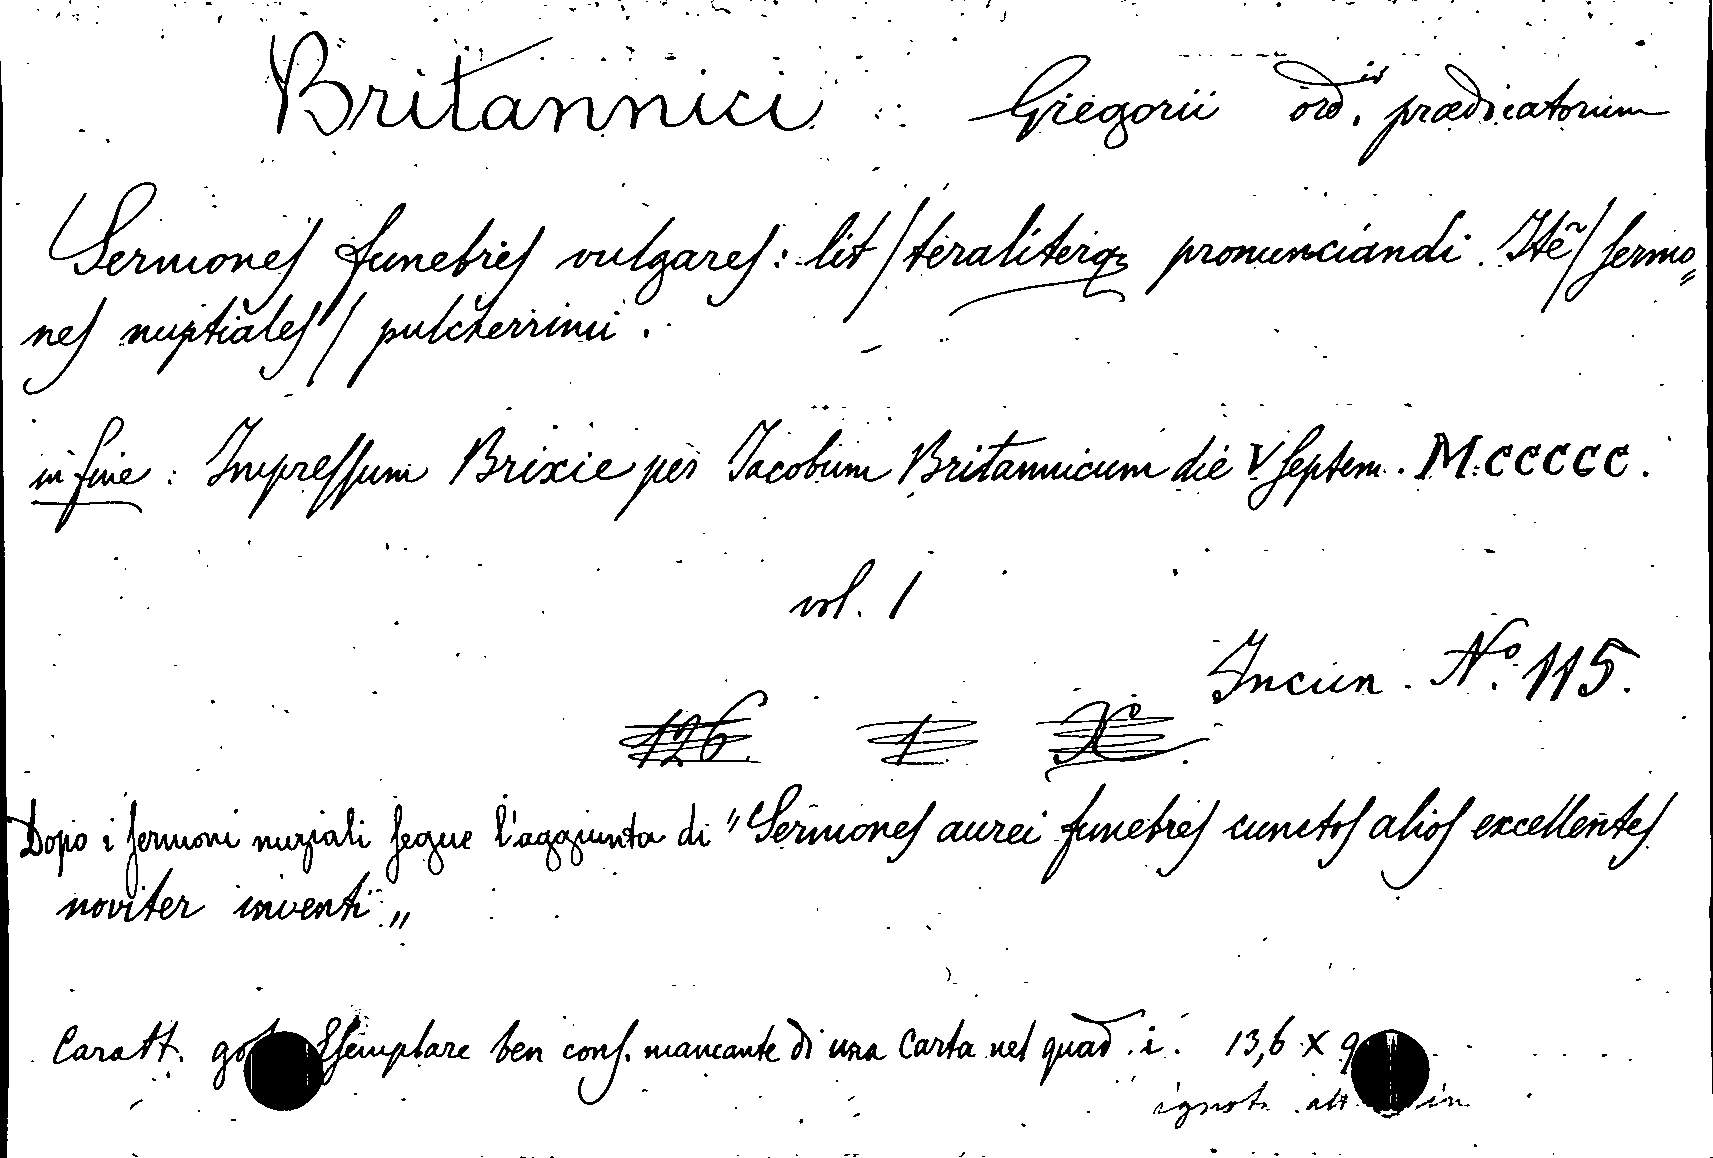 Britannici Gregorii ord.is prædicatorum
Sermones funebres vulgares: lit/teraliterqz pronunciandi. Itẽ/sermo„
nes nuptiales/pulcherrimi.
in fine: Impressum Brixie per Jacobum Britannicum die V Septem. M.CCCCC.
vol. 1
Incun. Nº. 115.
126. 1.
Dopo i sermoni nuziali segue l'aggiunta di "Sermones aurei funebres cunctos alios excellentes
noviter inventi„
Caratt. got Esemplare ben cons. mancante di una carta nel quad. i. 13,6 x 9